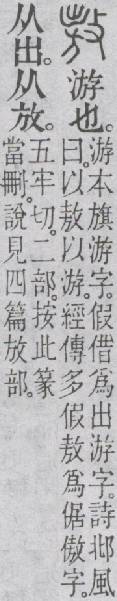 敖 游也。
游本旗游字。假借爲出游字。詩邶風
曰。以敖以游。經傳多假敖爲倨傲字。
从出。从放。
五牢切。二部。按此篆
當刪。說見四篇放部。